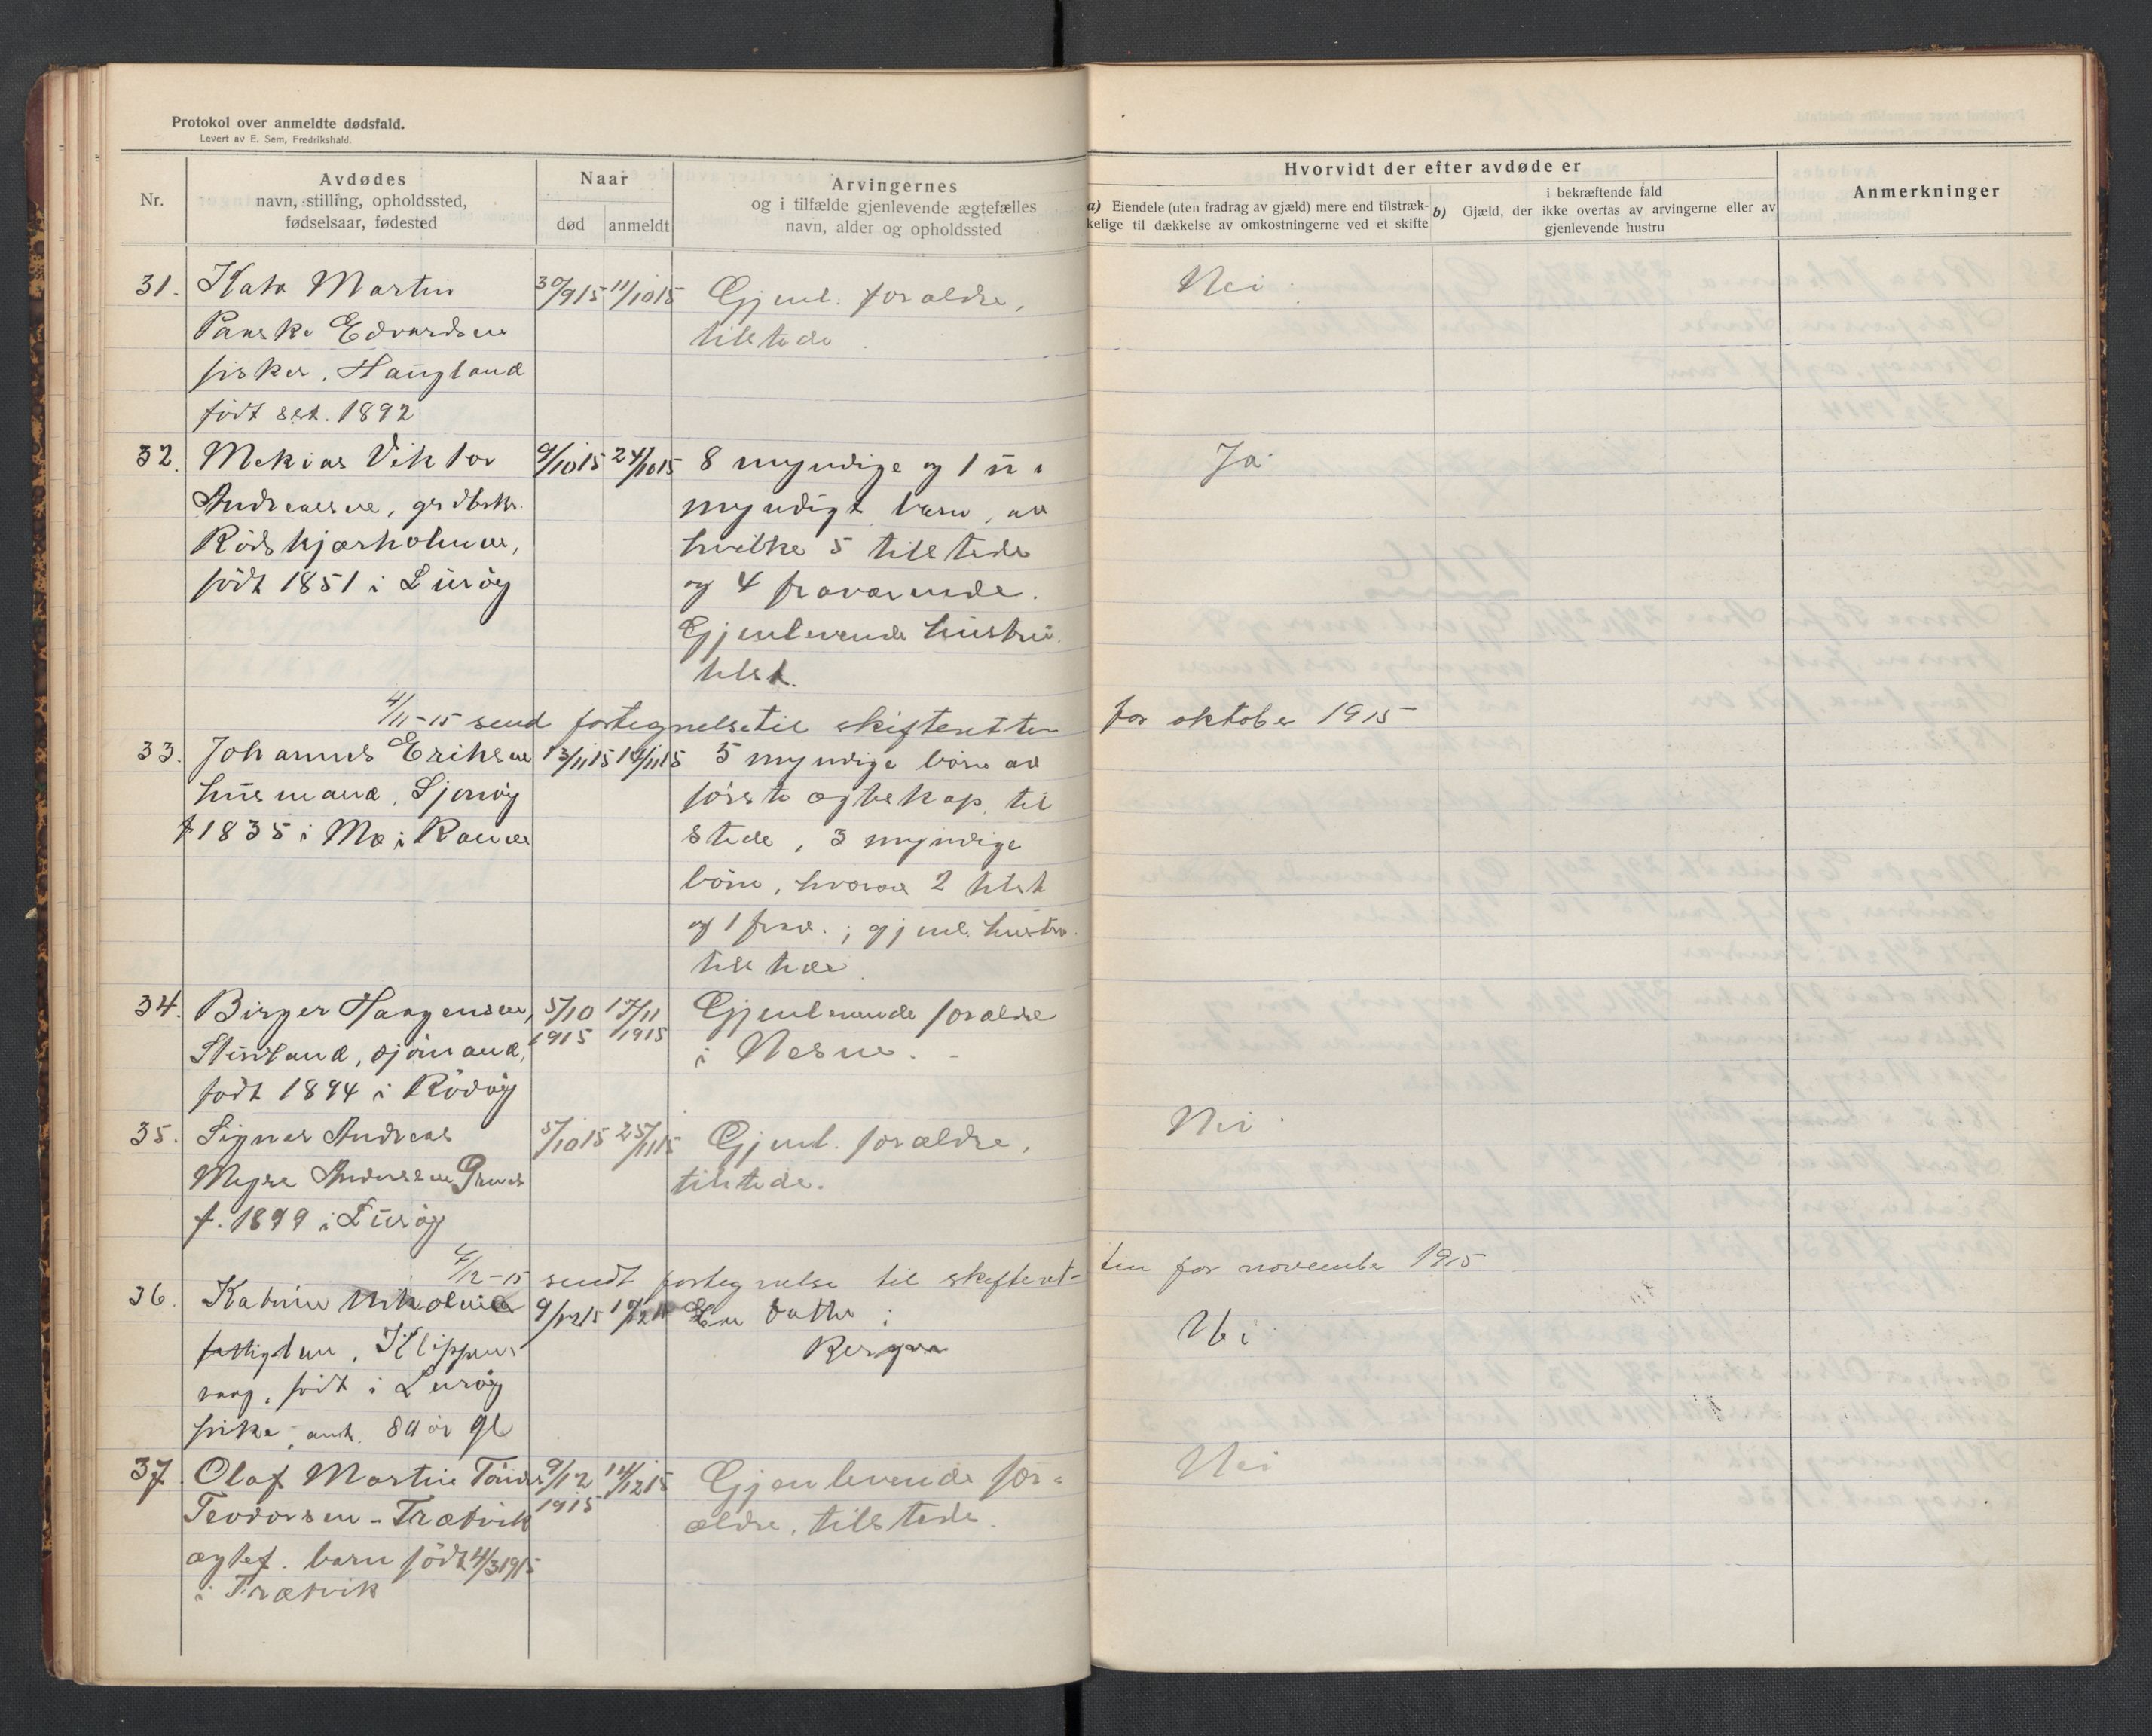 Protokol over anmeldte dødsfald.
Levert av E. Sem, Fredrikshald.
Nr.
Avdødes
navn, stilling, opholdssted,
fødselsaar, fødested
Naar
død
anmeldt
Arvingernes
og i tilfælde gjenlevende ægtefælles
navn, alder og opholdssted
Hvorvidt der efter avdøde er
a) Eiendele (uten fradrag av gjæld) mere end tilstræk-
kelige til dækkelse av omkostningerne ved et skifte
i bekræftende fald
b) Gjæld, der ikke overtas av arvingerne eller av
gjenlevende hustru
Anmerkninger
31. Kato Martin 30/9 15 11/10 15 Gjenl. forældre, Nei
Edvardsen tilstede.
fisker, Haugland
født 1892
32. Mekias Viktor 9/10 15 24/10 15 8 myndige og 1 u- Ja
Andreassen, grdbrkr. myndigt barn, av
Rødskjærholmen, hvilke 5 tilstede
født 1851 i Lurøy og 4 fraværende.
Gjenlevende hustru
tilst.
4/11-15 send fortegnelse til skifteretten for oktober 1915
33. Johannes Eriksen 13/11 15 14/11 15 5 myndige børn av
husmand, Sjonøy første egteskap, til
f 1835 i Mo i Ranen stede, 3 myndige
børn, hvorav 2 tilst
og 1 frav.; gjenl. hustru
tilstede.
34. Birger Haagensen, 5/10 17/11 Gjenlevende forældre
Stuvland, sjømand, 1915 1915 i Nesne. -
født 1894 i Rødøy
35. Signar Andreas 5/10 15 25/11 15 Gjenl. forældre, Nei
Andersen tilstede.
f. 1899 i Lurøy
4/12-15 sendt fortegnelse til skifteret- ten for november 1915
36. Katrine 9/12 15 En datter i Nei
fattiglem, Klippings Bergen
vaag, født i Lurøy
pike, ant. 80 år gl
37. Olaf Martin 9/12 14/12 15 Gjenlevende for- Nei
Teodorsen - Trætvik 1915 ældre, tilstede.
egtef. barn født 4/3 1915
i Trætvik